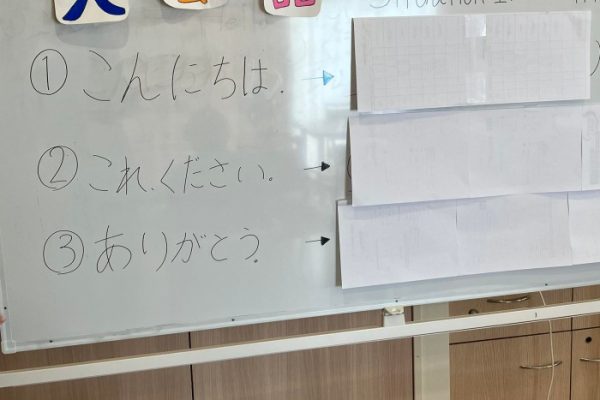 ① こんにちは.
② これ、ください。
③ ありがとう。